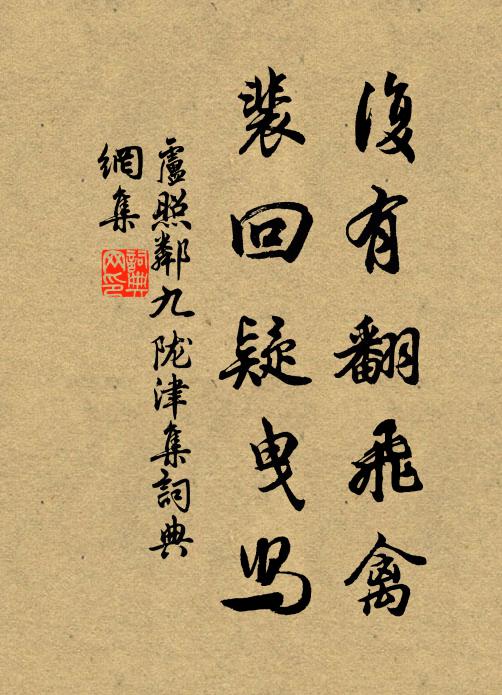 復有翻飛禽
裴回疑曳舃
盧照鄰九陇津集詞典
網集
詞典
网印